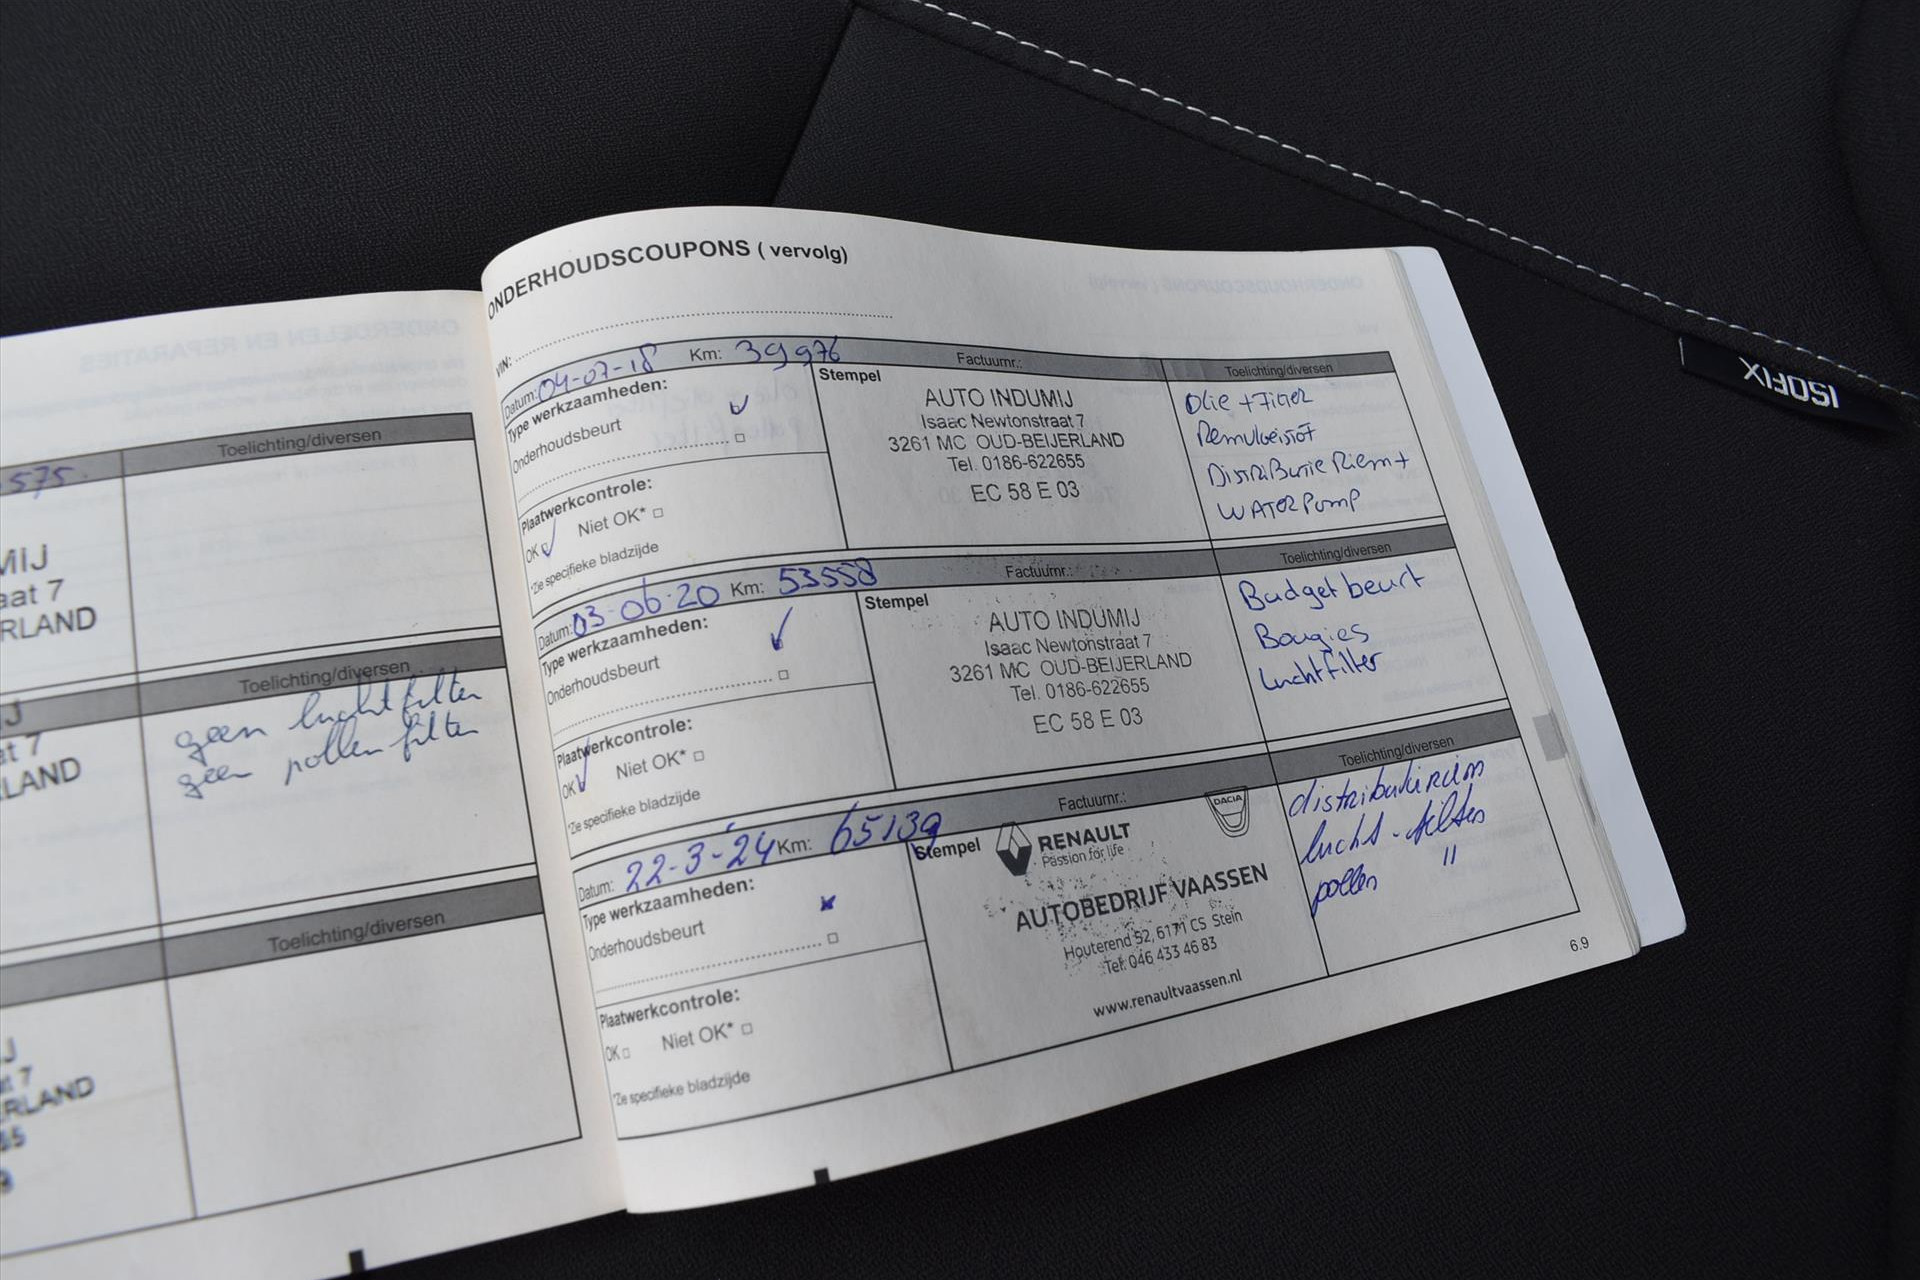 Toelichting/diversen
575.
MIJ
aat 7
RLAND
Toelichting/diversen
geen luchtfilter
geen pollen filter
J
at 7
LAND
Toelichting/diversen
J
at 7
ERLAND
55
9
ONDERHOUDSCOUPONS ( vervolg)
VIN:
Datum: 04-07-18 Km: 39976 Factuurnr.: Toelichting/diversen
Type werkzaamheden:
Onderhoudsbeurt
Plaatwerkcontrole:
OK Niet OK*
*Zie specifieke bladzijde
Stempel
AUTO INDUMIJ
Isaac Newtonstraat 7
3261 MC OUD-BEIJERLAND
Tel. 0186-622655
EC 58 E 03
Olie + Filter
Remvloeistof
Distributie Riem +
WATERPOMP
Datum: 03-06-20 Km: 53558 Factuurnr.: Toelichting/diversen
Type werkzaamheden:
Onderhoudsbeurt
Plaatwerkcontrole:
OK Niet OK*
*Zie specifieke bladzijde
Stempel
AUTO INDUMIJ
Isaac Newtonstraat 7
3261 MC OUD-BEIJERLAND
Tel. 0186-622655
EC 58 E 03
Budget beurt
Bougies
Luchtfilter
Datum: 22-3-'24 Km: 65139 Factuurnr.: Toelichting/diversen
Type werkzaamheden:
Onderhoudsbeurt
Plaatwerkcontrole:
OK Niet OK*
*Zie specifieke bladzijde
Stempel
RENAULT
Passion for life
DACIA
AUTOBEDRIJF VAASSEN
Houterend 52, 6171 CS Stein
Tel. 046 433 46 83
www.renaultvaassen.nl
distributieriem
lucht-filter
pollen "
6.9
ISOFIX